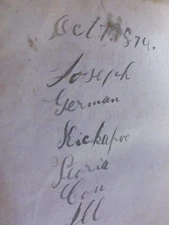 Oct 7. 1874.
Joseph
German
Kickapoo
Peoria
Con
Ill